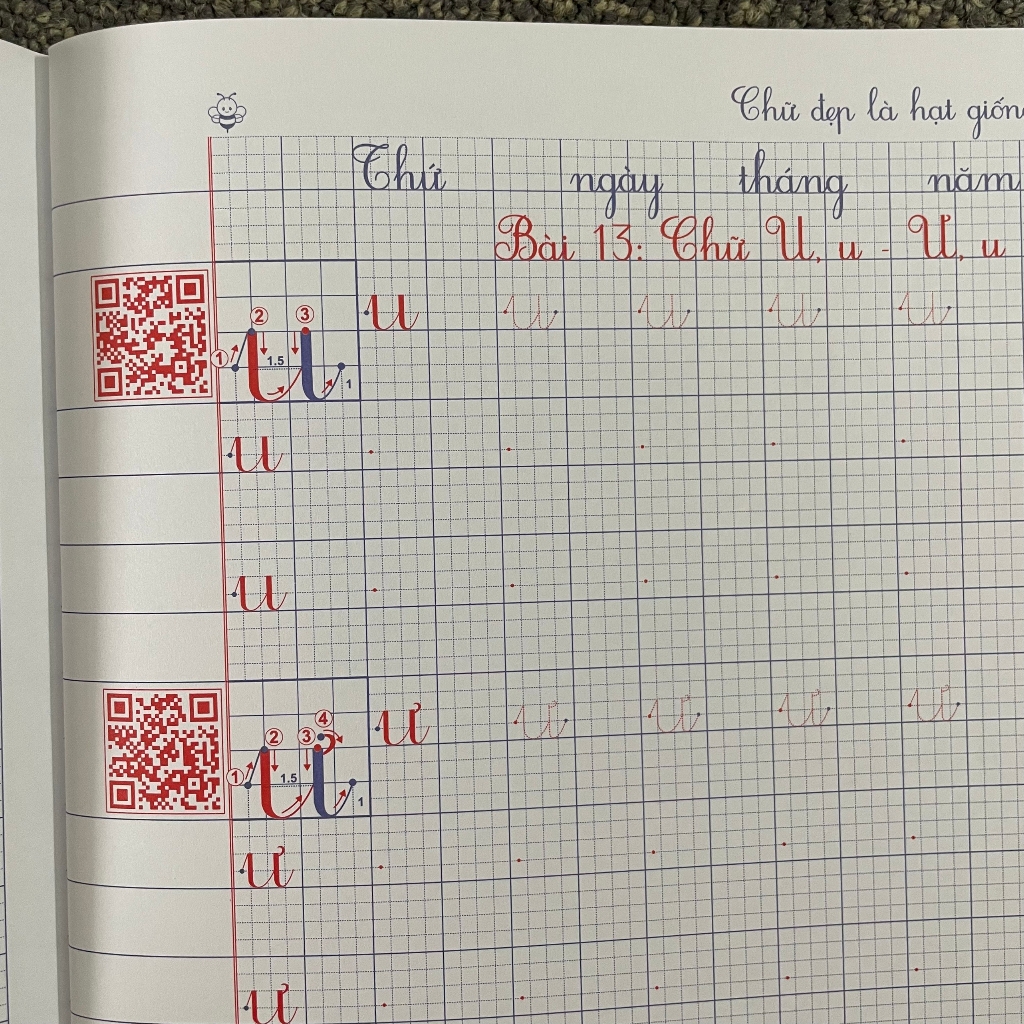 Chữ đẹp là hạt giốn
Thứ ngày tháng năm
Bài 13: Chữ U, u - Ư, u
① ② ③ 1.5 1 u u u u u
u
u
① ② ③ ④ 1.5 1 ư ư ư ư ư
ư
ư